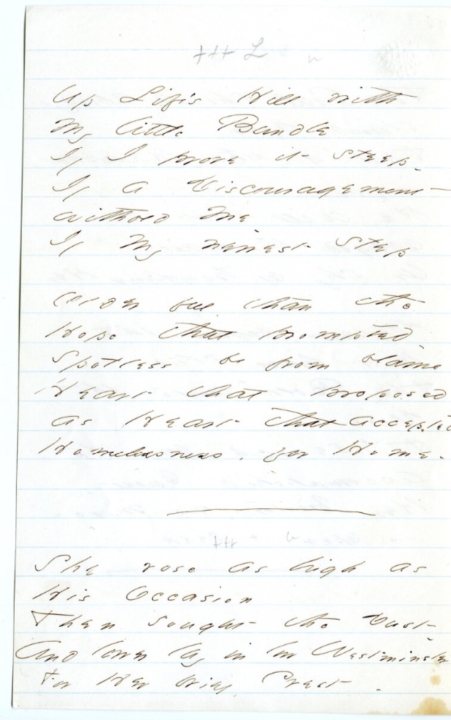 Up Life's Hill with
my little Bundle
If I prove it steep -
If a Discouragement
withold me
If my newest step
Older feel than the
Hope that prompted
Spotless be from blame
Heart that proposed
as Heart that accepted
Homelessness, for Home -
She rose as high as
His Occasion
Then sought the Dust -
And lower lay in low Westminster
For Her brief Crest -